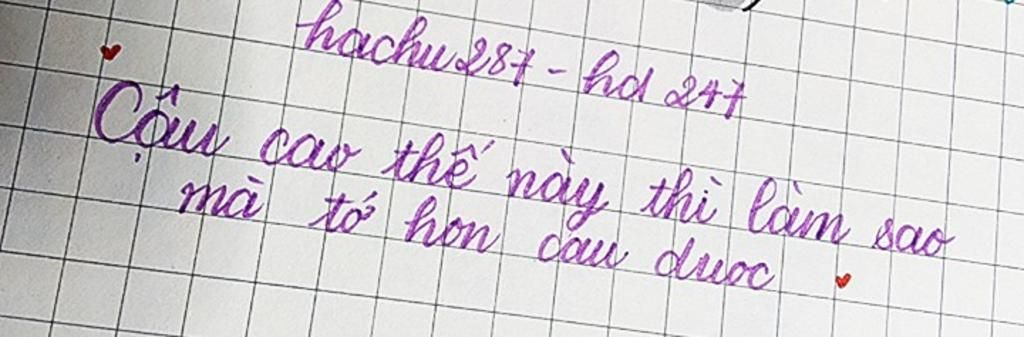 hachu287 - hd 247
Cậu cao thế này thì làm sao
mà tớ hon cau duoc